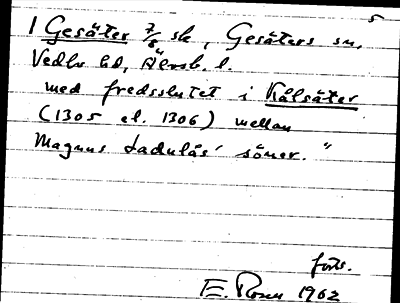 5
1 Gesäter 7/8 sk, Gesäters sn,
Vedbo hd, Älvsb. l.
med fredsslutet i Kålsäter
(1305 el. 1306) mellan
Magnus Ladulås' söner."
forts.
E. Rosen 1962